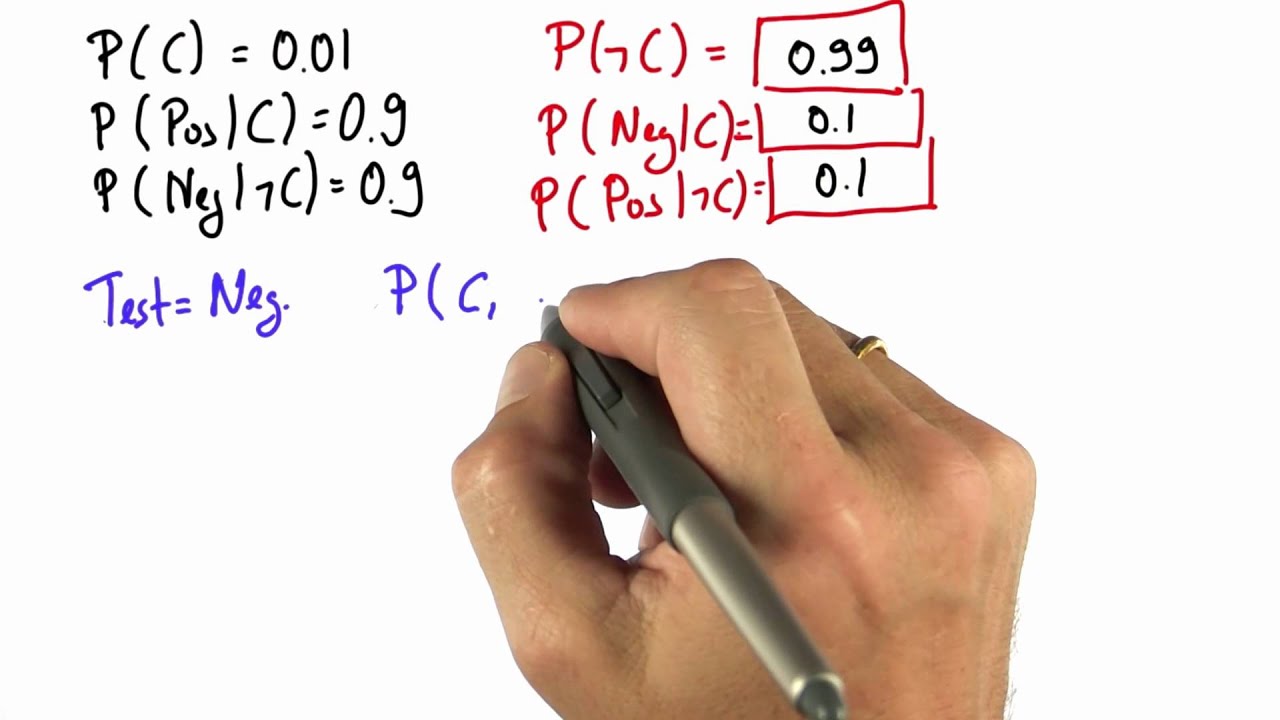 P(C) = 0.01
P(Pos|C) = 0.9
P(Neg|¬C) = 0.9
P(¬C) = 0.99
P(Neg|C) = 0.1
P(Pos|¬C) = 0.1
Test = Neg. P(C,